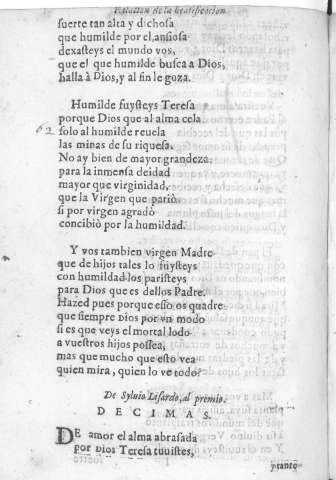 Relacion de la beatificacion
suerte tan alta y dichosa
que humilde por el, ansiosa
dexasteys el mundo vos,
que el que humilde busca a Dios,
halla à Dios, y al fin le goza.
Humilde fuysteys Teresa
porque Dios que al alma cela
62 solo al humilde reuela
las minas de su riquesa.
No ay bien de mayor grandeza
para la inmensa deidad
mayor que virginidad,
que la Virgen que pariò
si por virgen agradò
concibiò por la humildad.
Y vos tambien virgen Madre
que de hijos tales lo fuysteys
con humildad los paristeys
para Dios que es dellos Padre.
Hazed pues porque esso os quadre
que siempre Dios por vn modo
si es que veys el mortal lodo
a vuestros hijos possea,
mas que mucho que esto vea
quien mira, quien lo ve todo?
De Syluio Lisardo, al premio.
DECIMAS.
DE amor el alma abrasada
por Dios Teresa tuuistes,
y tanto